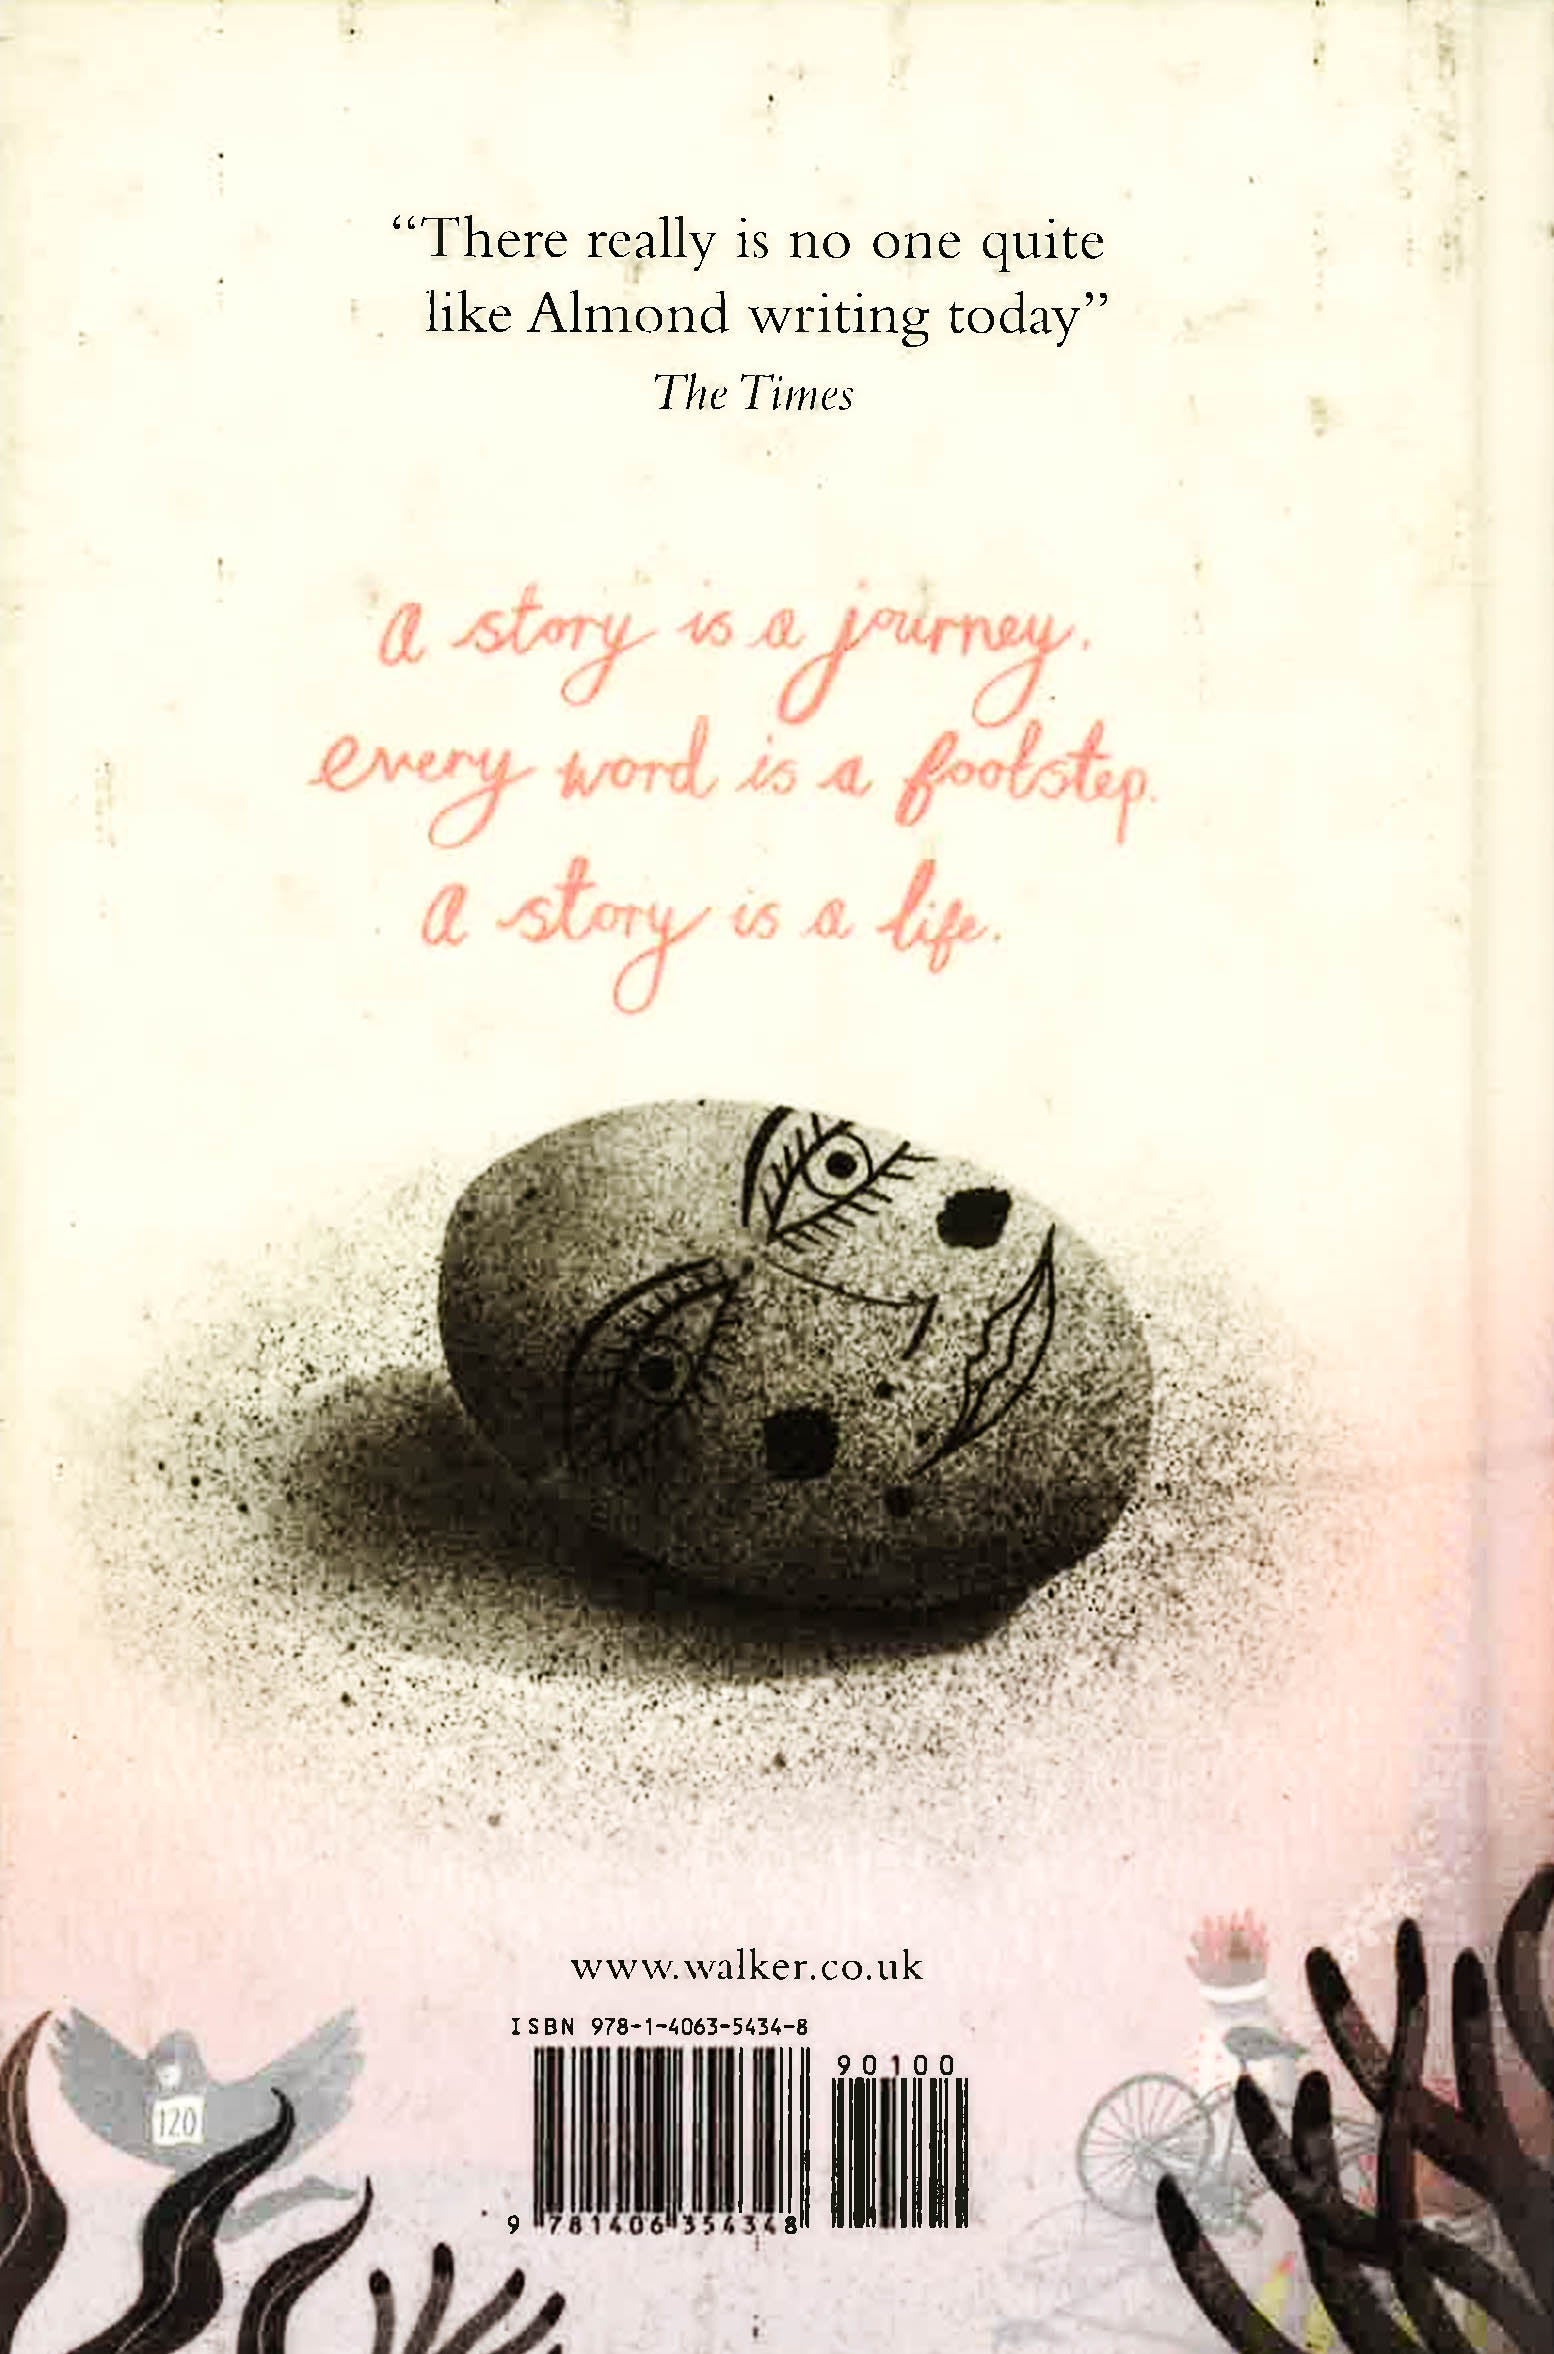 “There really is no one quite
like Almond writing today”
The Times
a story is a journey.
every word is a footstep.
a story is a life.
www.walker.co.uk
ISBN 978-1-4063-5434-8
90100
9 781406 354348
120